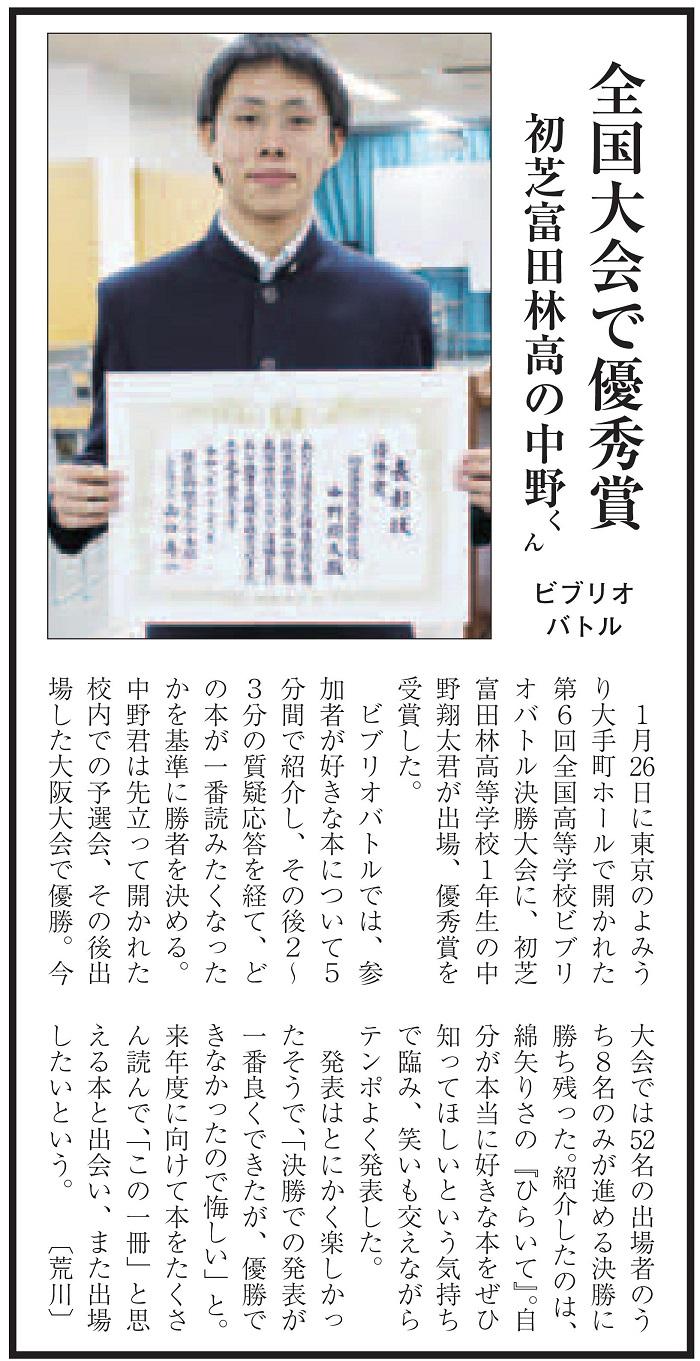 全国大会で優秀賞
初芝富田林高の中野くん
ビブリオ
バトル
表彰状
優秀賞
１月26日に東京のよみう
り大手町ホールで開かれた
第６回全国高等学校ビブリ
オバトル決勝大会に、初芝
富田林高等学校１年生の中
野翔太君が出場、優秀賞を
受賞した。
ビブリオバトルでは、参
加者が好きな本について５
分間で紹介し、その後２〜
３分の質疑応答を経て、ど
の本が一番読みたくなった
かを基準に勝者を決める。
中野君は先立って開かれた
校内での予選会、その後出
場した大阪大会で優勝。今
大会では52名の出場者のう
ち８名のみが進める決勝に
勝ち残った。紹介したのは、
綿矢りさの『ひらいて』。自
分が本当に好きな本をぜひ
知ってほしいという気持ち
で臨み、笑いも交えながら
テンポよく発表した。
発表はとにかく楽しかっ
たそうで、「決勝での発表が
一番良くできたが、優勝で
きなかったので悔しい」と。
来年度に向けて本をたくさ
ん読んで、「この一冊」と思
える本と出会い、また出場
したいという。〔荒川〕